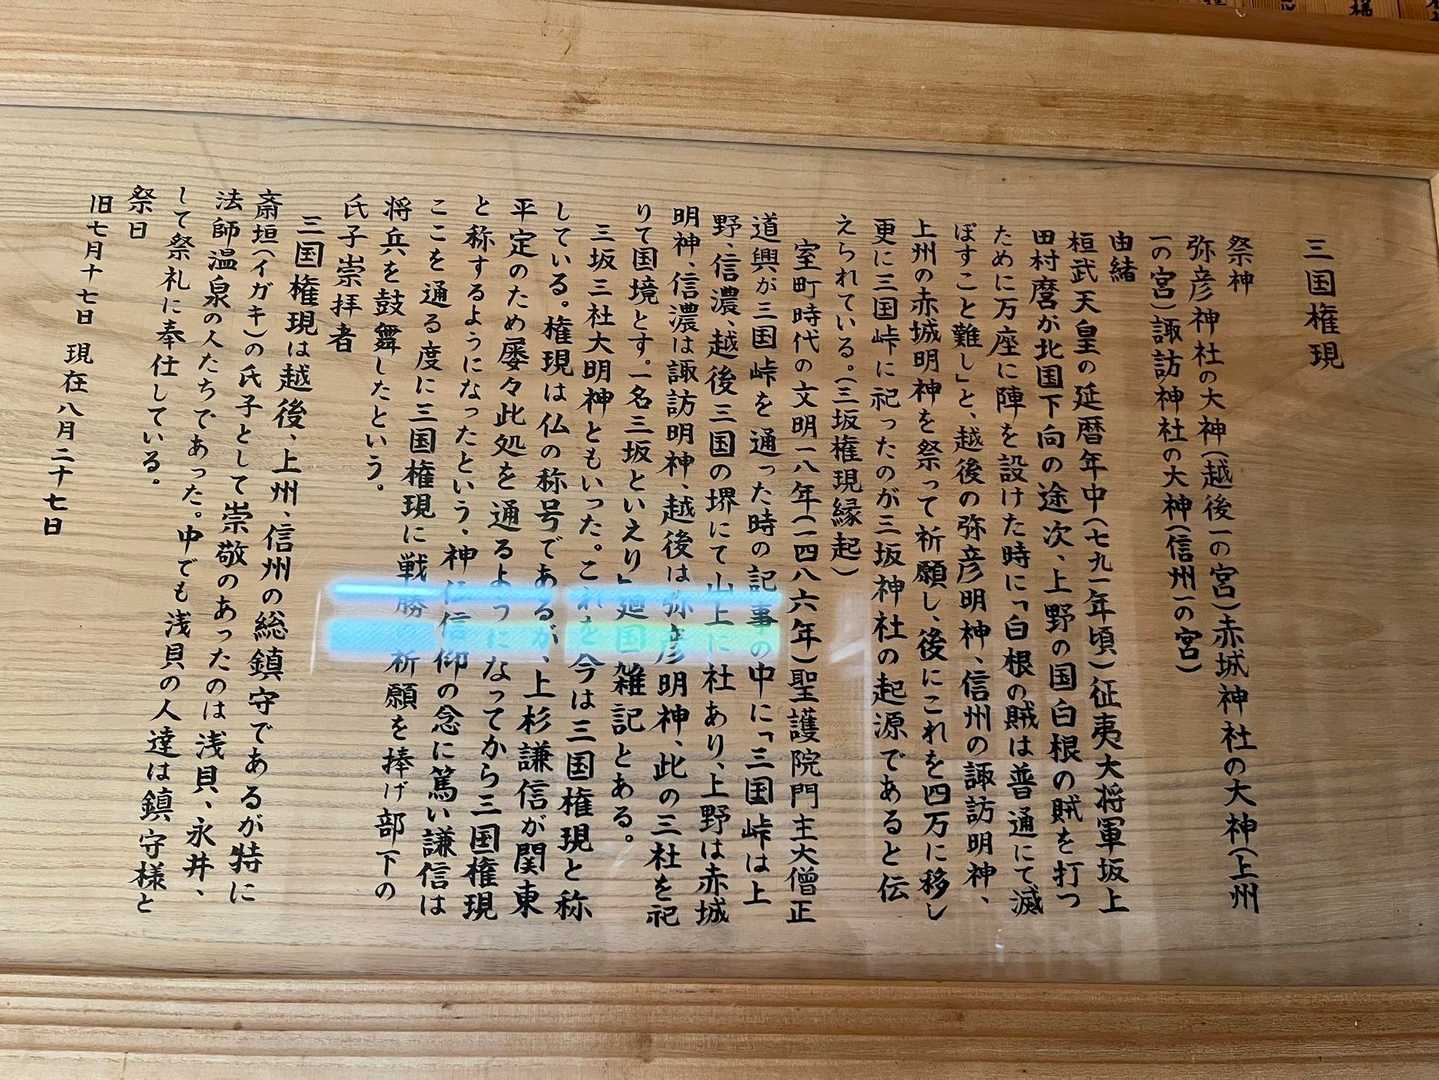 三国権現
祭神
弥彦神社の大神(越後一の宮)赤城神社の大神(上州
一の宮)諏訪神社の大神(信州一の宮)
由緒
桓武天皇の延暦年中(七九一年頃)征夷大将軍坂上
田村麿が北国下向の途次、上野の国白根の賊を打つ
ために万座に陣を設けた時に「白根の賊は普通にて滅
ぼすこと難し」と、越後の弥彦明神、信州の諏訪明神、
上州の赤城明神を祭って祈願し、後にこれを四万に移し
更に三国峠に祀ったのが三坂神社の起源であると伝
えられている。(三坂権現縁起)
室町時代の文明一八年(一四八六年)聖護院門主大僧正
道興が三国峠を通った時の記事の中に「三国峠は上
野、信濃、越後三国の堺にて山上に社あり、上野は赤城
明神、信濃は諏訪明神、越後は弥彦明神、此の三社を祀
りて国境とす。一名三坂といえり」廻国雑記とある。
三坂三社大明神ともいった。これを今は三国権現と称
している。権現は仏の称号であるが、上杉謙信が関東
平定のため屡々此処を通るようになってから三国権現
と称するようになったという、神仏信仰の念に篤い謙信は
ここを通る度に三国権現に戦勝祈願を捧げ部下の
将兵を鼓舞したという。
氏子崇拝者
三国権現は越後、上州、信州の総鎮守であるが特に
斎垣(イガキ)の氏子として崇敬のあったのは浅貝、永井、
法師温泉の人たちであった。中でも浅貝の人達は鎮守様と
して祭礼に奉仕している。
祭日
旧七月十七日 現在八月二十七日